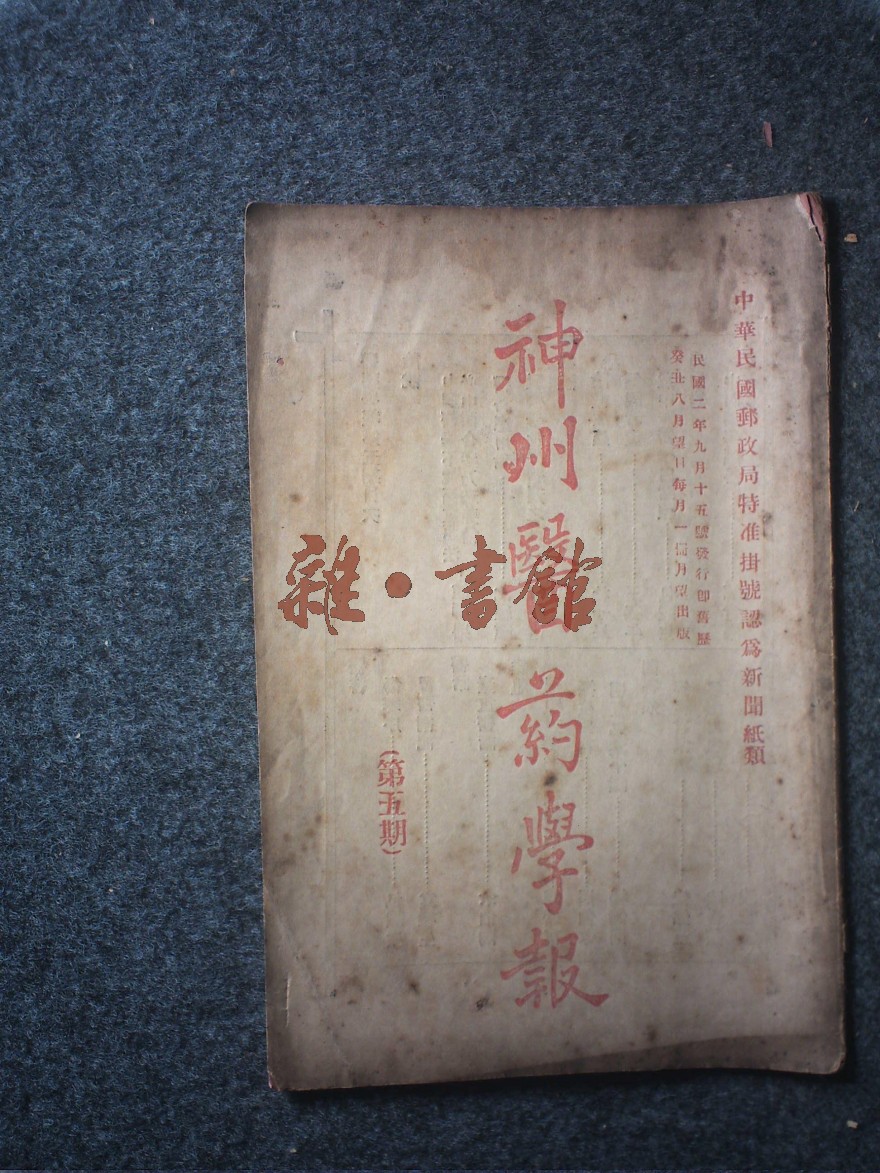 中華民國郵政局特准掛號認爲新聞紙類
民國二年九月十五號發行卽舊歷
癸丑八月望日每月一冊月望出版
神州醫葯學報
(第五期)
雜·書館